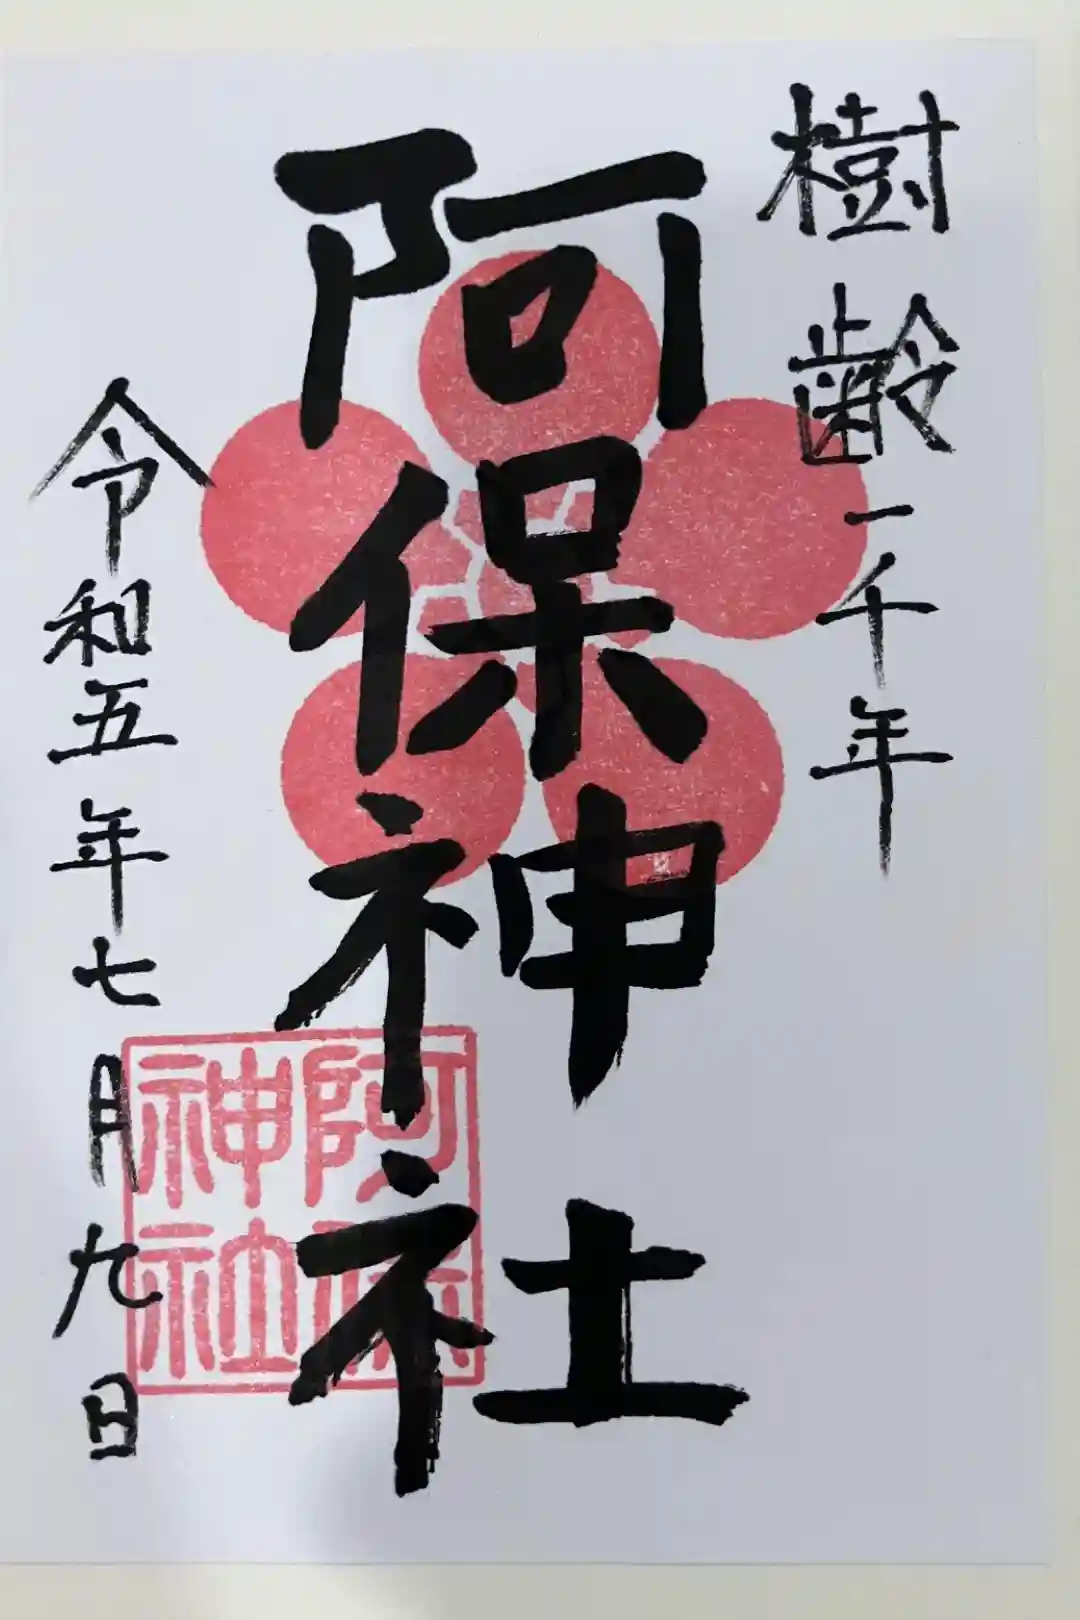 樹齢一千年
阿保神社
令和五年七月九日
阿保
神社